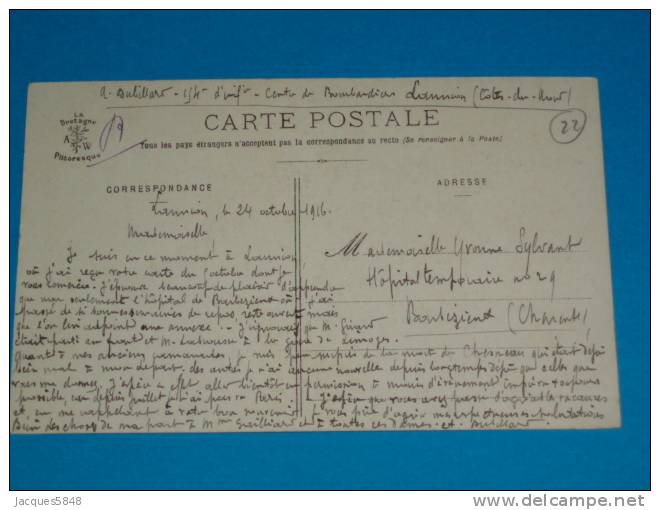 a. Dubillard - 154e d'inf - Centre de Bombardiers Lannion (Côtes-du-Nord)
22
La
Bretagne
A W
Pittoresque
CARTE POSTALE
Tous les pays étrangers n'acceptent pas la correspondance au recto (Se renseigner à la Poste)
CORRESPONDANCE
Lannion, le 24 octobre 1916.
Mademoiselle,
Je suis en ce moment à Lannion
où j'ai reçu votre carte du octobre dont je
vous remercie. J'éprouve beaucoup de plaisir d'apprendre
que non seulement l'hôpital de Barbezieux où j'ai
passé de si bonnes semaines de repos, reste ouvert mais
que l'on lui adjoint une annexe. J'apprends que M. Girard
était parti au front et M. à la gare de Limoges.
quant à mes anciens camarades je suis surpris de la mort de Chesneau qui était déjà
bien mal à mon départ, des autres je n'ai aucune nouvelle depuis longtemps déjà que celles que
vous me donnez. J'espère aller bientôt en permission à moins d'événement imprévu toujours
possible, depuis juillet je n'ai pas vu Paris. J'espère que vous avez passé d'agréables vacances
et, en me rappelant à votre bon souvenir je vous prie d'agréer mes respectueuses salutations
Bien des choses de ma part à Mme Gaillard et à toutes ces Dames. et. Dubillard.
ADRESSE
Mademoiselle Yvonne Sylvant
Hôpital temporaire no 29
Barbezieux (Charente)
Jacques5848
delcampe.net